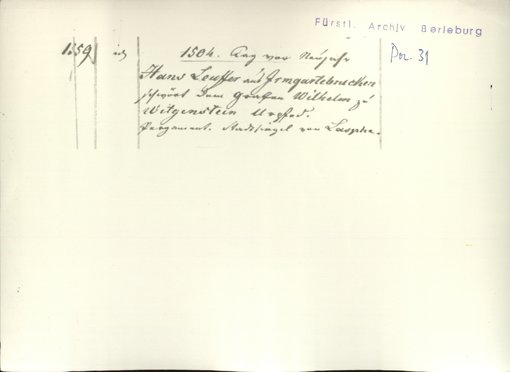 Fürstl. Archiv Berleburg
Doc. 31
1504. Tag vor Neujahr
Hans Louffer aus Irmgartebrucken
schwört dem Grafen Wilhelm zu
Witgenstein Urphed.
Pergament. Stadtsiegel von Laasphe.